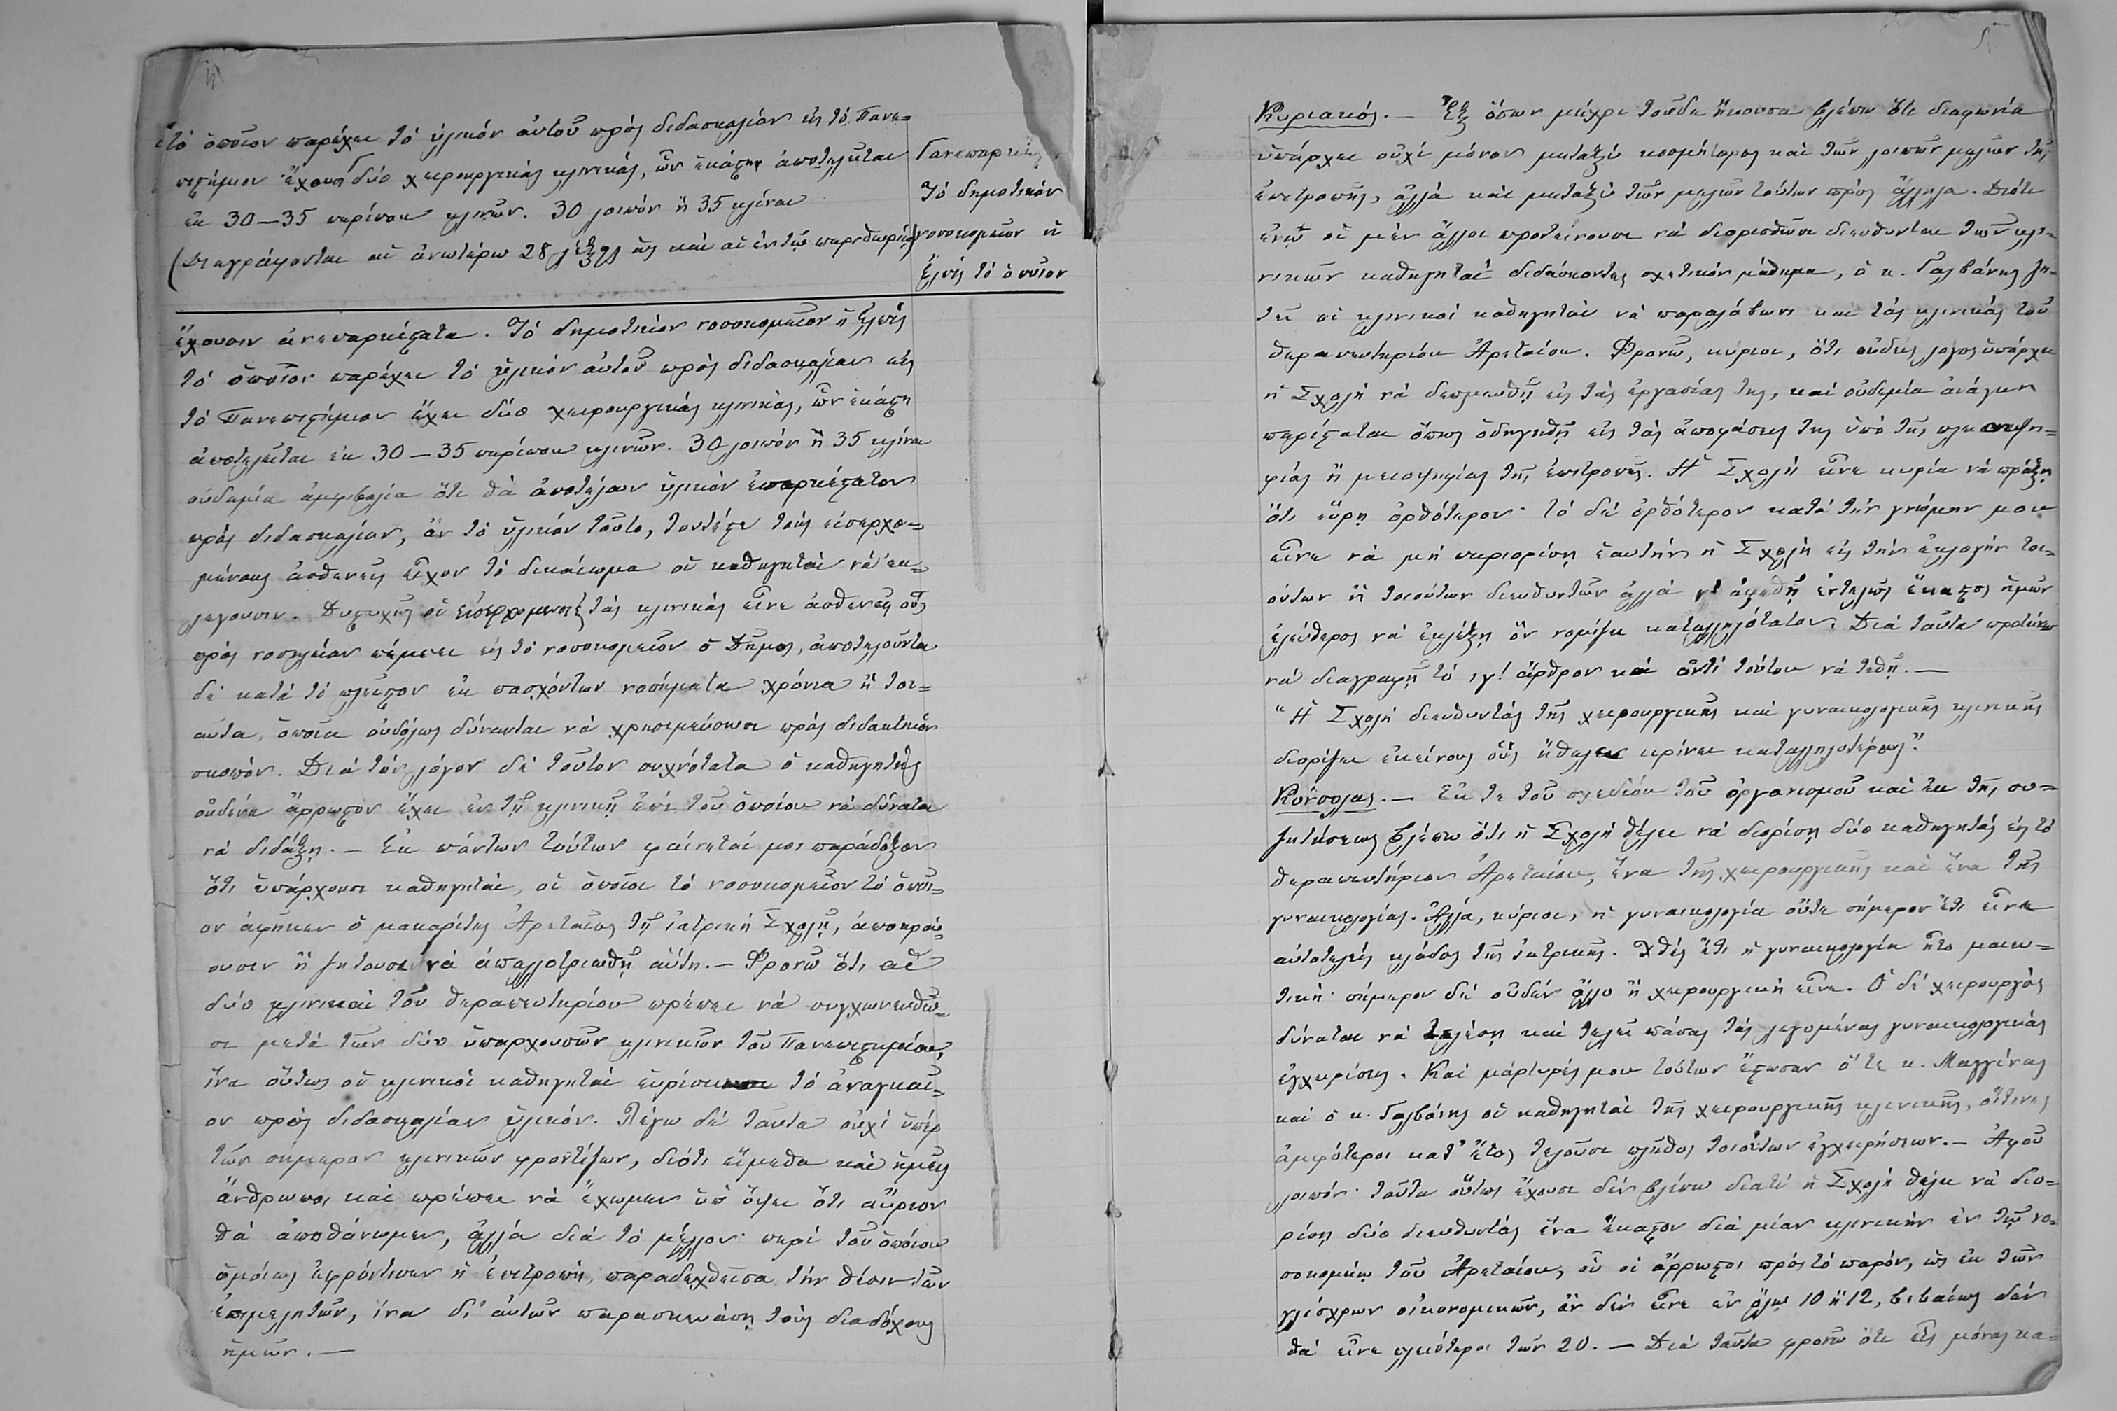 τὸ ὁποῖον παρέχει τὸ ὑλικὸν αὐτοῦ πρὸς διδασκαλίαν εἰς τὸ Πανε-
πιστήμιον ἔχουσι δύο χειρουργικὰς κλινικάς, ὧν ἑκάστη ἀποτελεῖται
ἐκ 30—35 περίπου κλινῶν. 30 λοιπὸν ἢ 35 κλῖναι
(Διαγράφονται αἱ ἀνωτέρω 28 λέξεις ὡς καὶ αἱ ἐν τῷ περιθωρίῳ)
ἀνεπαρκέ
Τὸ δημοτικὸν
νοσοκομεῖον ἡ
Ἐλπὶς τὸ ὁποῖον
ἔχουσιν ἀνεπαρκέστατα. Τὸ δημοτικὸν νοσοκομεῖον ἡ Ἐλπὶς
τὸ ὁποῖον παρέχει τὸ ὑλικὸν αὐτοῦ πρὸς διδασκαλίαν εἰς
τὸ Πανεπιστήμιον ἔχει δύο χειρουργικὰς κλινικάς, ὧν ἑκάστη
ἀποτελεῖται ἐκ 30—35 περίπου κλινῶν. 30 λοιπὸν ἢ 35 κλῖναι
οὐδεμία ἀμφιβολία ὅτι θὰ ἀπετέλουν ὑλικὸν ἐπαρκέστατον
πρὸς διδασκαλίαν, ἂν τὸ ὑλικὸν τοῦτο, τουτέστι τοὺς εἰσερχο-
μένους ἀσθενεῖς εἶχον τὸ δικαίωμα οἱ καθηγηταὶ νὰ ἐκ-
λέγουσιν. Δυστυχῶς οἱ εἰσερχόμενοι τὰς κλινικὰς εἶνε ἀσθενεῖς οὓς
πρὸς νοσηλείαν πέμπει εἰς τὸ νοσοκομεῖον ὁ Δῆμος, ἀποτελοῦνται
δὲ κατὰ τὸ πλεῖστον ἐκ πασχόντων νοσήματα χρόνια ἢ τοι-
αῦτα, ὁποῖα οὐδόλως δύνανται νὰ χρησιμεύσωσι πρὸς διδακτικὸν
σκοπόν. Διὰ τὸν λόγον δὲ τοῦτον συχνότατα ὁ καθηγητὴς
οὐδένα ἄρρωστον ἔχει ἐν τῇ κλινικῇ ἐπὶ τοῦ ὁποίου νὰ δύναται
νὰ διδάξῃ.— Ἐκ πάντων τούτων φαίνεταί μοι παράδοξον
ὅτι ὑπάρχουσι καθηγηταί, οἱ ὁποῖοι τὸ νοσοκομεῖον τὸ ὁποῖ-
ον ἀφῆκεν ὁ μακαρίτης Ἀρεταῖος τῇ ἰατρικῇ Σχολῇ, ἀποκρού-
ουσιν ἢ ζητοῦσι νὰ ἀπαλλοτριωθῇ αὕτη.— Φρονῶ ὅτι αἱ
δύο κλινικαὶ τοῦ θεραπευτηρίου πρέπει νὰ συγχωνευθῶ-
σι μετὰ τῶν δύο ὑπαρχουσῶν κλινικῶν τοῦ Πανεπιστημίου,
ἵνα οὕτως οἱ κλινικοὶ καθηγηταὶ τὸ ἀναγκαῖ-
ον πρὸς διδασκαλίαν ὑλικόν. Λέγω δὲ ταῦτα οὐχὶ ὑπὲρ
τῶν σήμερον κλινικῶν φροντίζων, διότι εἴμεθα καὶ ἡμεῖς
ἄνθρωποι καὶ πρέπει νὰ ἔχωμεν ὑπ' ὄψει ὅτι αὔριον
θὰ ἀποθάνωμεν, ἀλλὰ διὰ τὸ μέλλον· περὶ τοῦ ὁποίου
ὁμοίως ἐφρόντισεν ἡ ἐπιτροπὴ παραδεχθεῖσα τὴν θέσιν τῶν
ἐπιμελητῶν, ἵνα δι' αὐτῶν παρασκευάσῃ τοὺς διαδόχους
ἡμῶν.—
Κυριακός.— Ἐξ ὅσων μέχρι τοῦδε ἤκουσα βλέπω ὅτι διαφωνία
ὑπάρχει οὐχὶ μόνον μεταξὺ κοσμήτορος καὶ τῶν λοιπῶν μελῶν τῆς
ἐπιτροπῆς, ἀλλὰ καὶ μεταξὺ τῶν μελῶν τούτων πρὸς ἄλληλα. Διότι
ἐνῷ οἱ μὲν ἄλλοι προτείνουσι νὰ διορισθῶσι διευθυνταὶ τῶν κλι-
νικῶν καθηγηταὶ διδάσκοντες σχετικὸν μάθημα, ὁ κ. Γαλβάνης ζη-
τεῖ οἱ κλινικοὶ καθηγηταὶ νὰ παραλάβωσι καὶ τὰς κλινικὰς τοῦ
θεραπευτηρίου Ἀρεταίου. Φρονῶ, κύριοι, ὅτι οὐδεὶς λόγος ὑπάρχει
ἡ Σχολὴ νὰ δεσμευθῇ εἰς τὰς ἐργασίας της, καὶ οὐδεμία ἀνάγκη
παρίσταται ὅπως ὁδηγηθῇ εἰς τὰς ἀποφάσεις της ὑπὸ τῆς πλειονοψη-
φίας ἢ μειοψηφίας τῆς ἐπιτροπῆς. Ἡ Σχολὴ εἶνε κυρία νὰ πράξῃ
ὅτι εὕρῃ ὀρθότερον· τὸ δὲ ὀρθότερον κατὰ τὴν γνώμην μου
εἶνε νὰ μὴ περιορίσῃ ἑαυτὴν ἡ Σχολὴ εἰς τὴν ἐκλογὴν τοι-
ούτων ἢ τοιούτων διευθυντῶν ἀλλὰ ν' ἀφεθῇ ἐντελῶς ἕκαστος ἡμῶν
ἐλεύθερος νὰ ἐκλέξῃ ὃν νομίζει καταλληλότατον. Διὰ ταῦτα προτείνω
νὰ διαγραφῇ τὸ ιγ! ἄρθρον καὶ ἀντὶ τούτου νὰ τεθῇ.—
"Ἡ Σχολὴ διευθυντὰς τῆς χειρουργικῆς καὶ γυναικολογικῆς κλινικῆς
διορίζει ἐκείνους οὓς ἤθελεν κρίνει καταλληλοτέρους".
Κύρσολας.— Ἐκ τε τοῦ σχεδίου τοῦ ὀργανισμοῦ καὶ ἐκ τῆς συ-
ζητήσεως βλέπω ὅτι ἡ Σχολὴ θέλει νὰ διορίσῃ δύο καθηγητὰς εἰς τὸ
θεραπευτήριον Ἀρεταίου, ἕνα τῆς χειρουργικῆς καὶ ἕνα τῆς
γυναικολογίας. Ἀλλά, κύριοι, ἡ γυναικολογία οὔτε σήμερον ἔτι εἶνε
αὐτοτελὴς κλάδος τῆς ἰατρικῆς. Χθὲς ἔτι ἡ γυναικολογία ἦτο μαιευ-
τική· σήμερον δὲ οὐδὲν ἄλλο ἢ χειρουργικὴ εἶνε. Ὁ δὲ χειρουργὸς
δύναται νὰ τελέσῃ καὶ τελεῖ πάσας τὰς λεγομένας γυναικολογικὰς
ἐγχειρίσεις. Καὶ μάρτυρές μου τούτων ἔστωσαν ὅ τε κ. Μαγγίνας
καὶ ὁ κ. Γαλβάνης οἱ καθηγηταὶ τῆς χειρουργικῆς κλινικῆς, οἵτινες
ἀμφότεροι κατ' ἔτος τελοῦσι πλῆθος τοιούτων ἐγχειρήσεων.— Ἀφοῦ
λοιπὸν ταῦτα οὕτως ἔχουσι δὲν βλέπω διατὶ ἡ Σχολὴ θέλει νὰ διο-
ρίσῃ δύο διευθυντὰς ἕνα ἕκαστον διὰ μίαν κλινικὴν ἐν τῷ νο-
σοκομείῳ τοῦ Ἀρεταίου, οὗ οἱ ἄρρωστοι πρὸς τὸ παρόν, ὡς ἐκ τῶν
γλίσχρων οἰκονομικῶν, ἂν δὲν εἶνε ἐν ὅλῳ 10 ἢ 12, βεβαίως δὲν
θὰ εἶνε πλειότεροι τῶν 20.— Διὰ ταῦτα φρονῶ ὅτι εἷς μόνος κα-